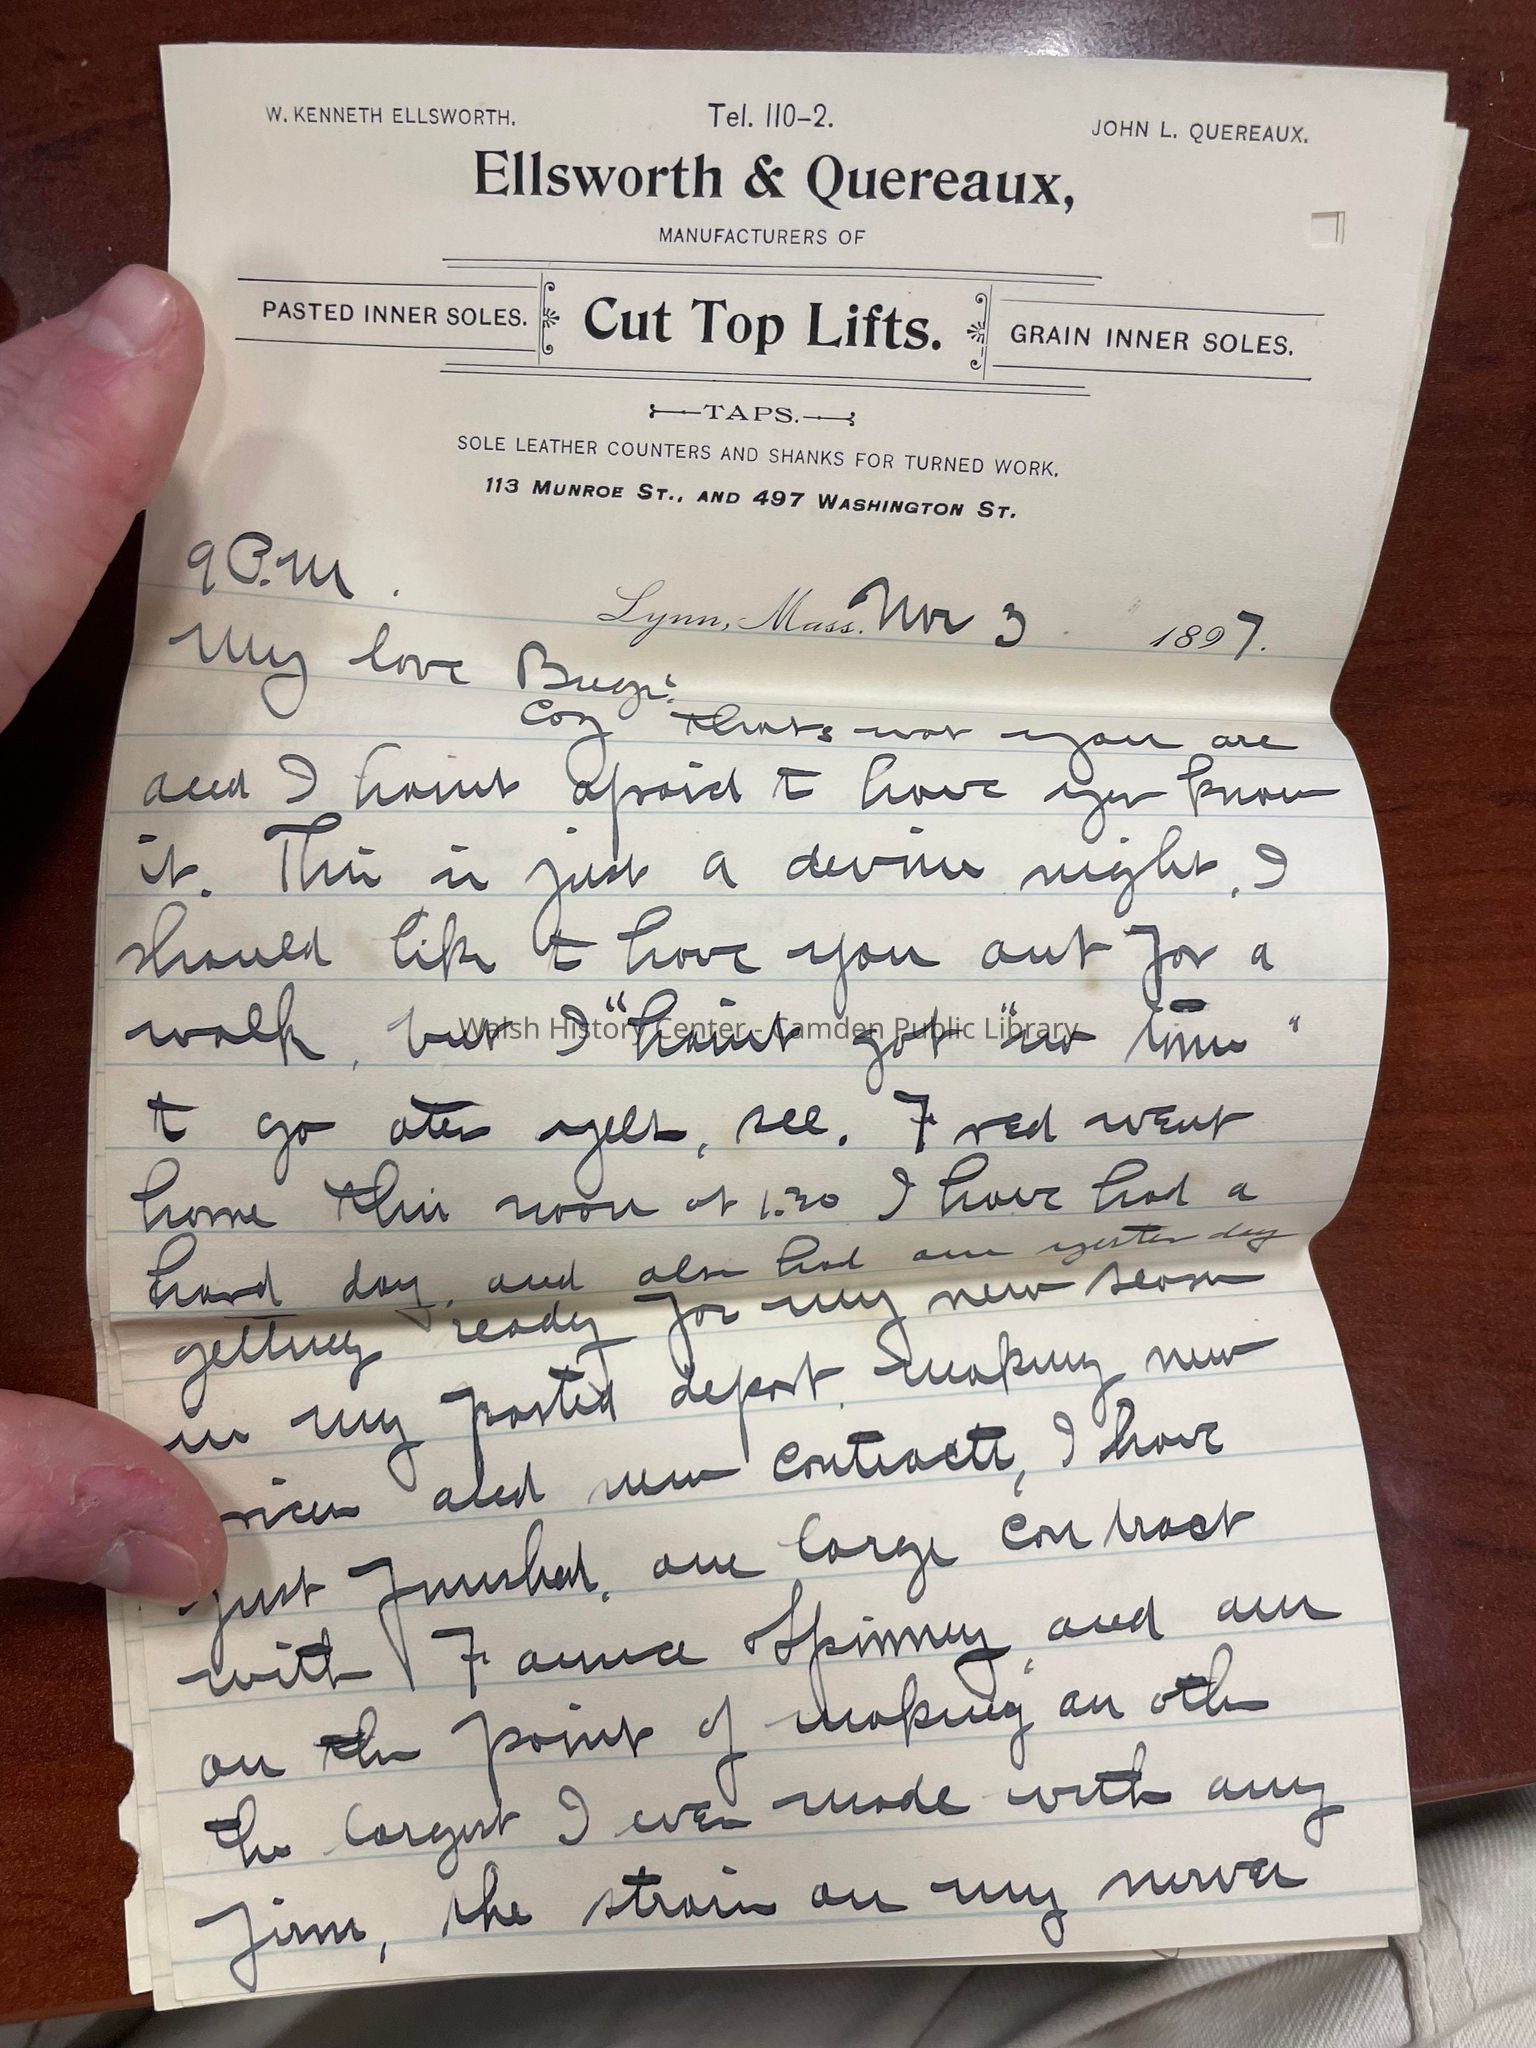 W. KENNETH ELLSWORTH. Tel. 110-2. JOHN L. QUEREAUX.
Ellsworth & Quereaux,
MANUFACTURERS OF
PASTED INNER SOLES. Cut Top Lifts. GRAIN INNER SOLES.
TAPS.
SOLE LEATHER COUNTERS AND SHANKS FOR TURNED WORK.
113 MUNROE ST., AND 497 WASHINGTON ST.
9 P.M.
Lynn, Mass. Nov 3 1897.
My love
Coz thats wot you are
and I haint afraid to have yer know
it. This is just a devine night, I
should like to have you out for a
walk, but I "haint got "no time"
Walsh History Center - Camden Public Library
to go see. Fred went
home this noon at 1.30 I have had a
hard day, and also had one yesterday
getting ready for my new season
in my pasted depart. making new
and new contracts, I have
just finished, one large contract
with Faunce Spinney, and am
on the point of making an oth
the largest I ever made with any
firm, the strain on my nerves